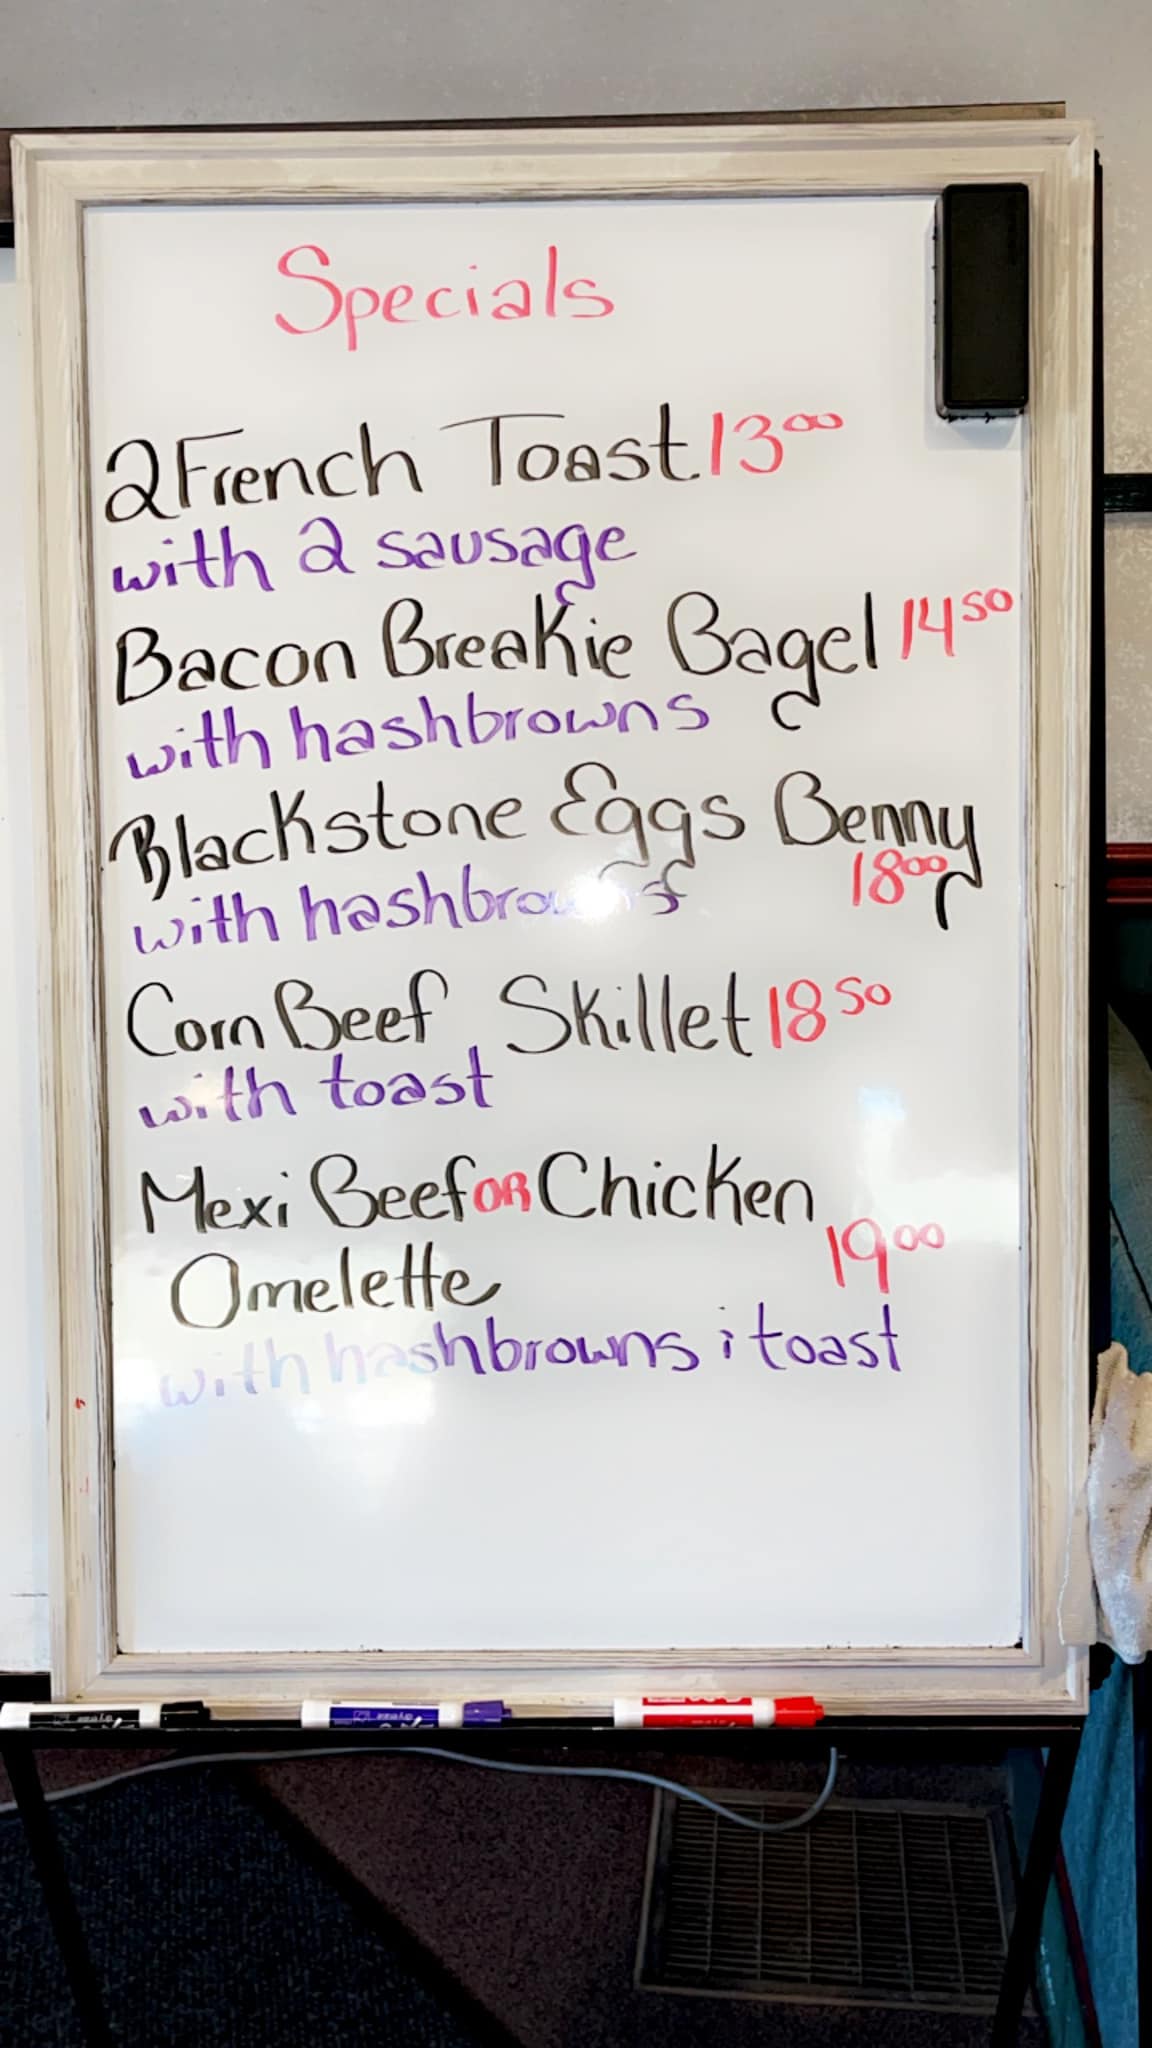 Specials
2 French Toast 13⁰⁰
with 2 sausage
Bacon Breakie Bagel 14⁵⁰
with hashbrowns
Blackstone Eggs Benny
18⁰⁰
with hashbrowns
Corn Beef Skillet 18⁵⁰
with toast
Mexi Beef OR Chicken
Omelette 19⁰⁰
with hashbrowns i toast